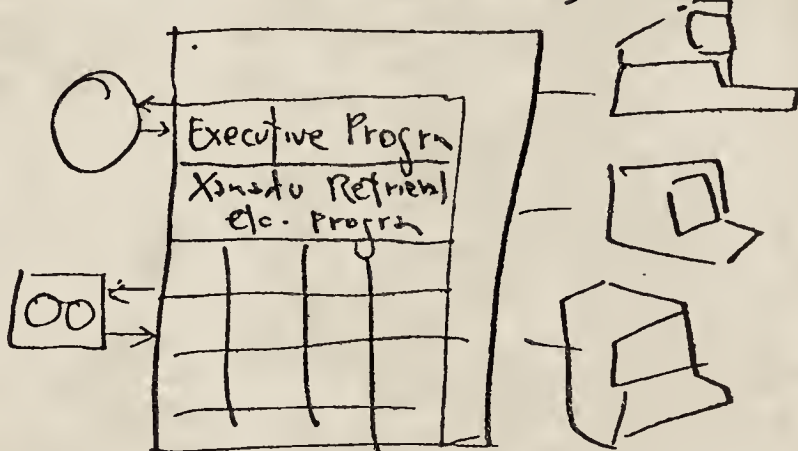 Executive Progrm
Xanadu Retrieval
etc. progrm